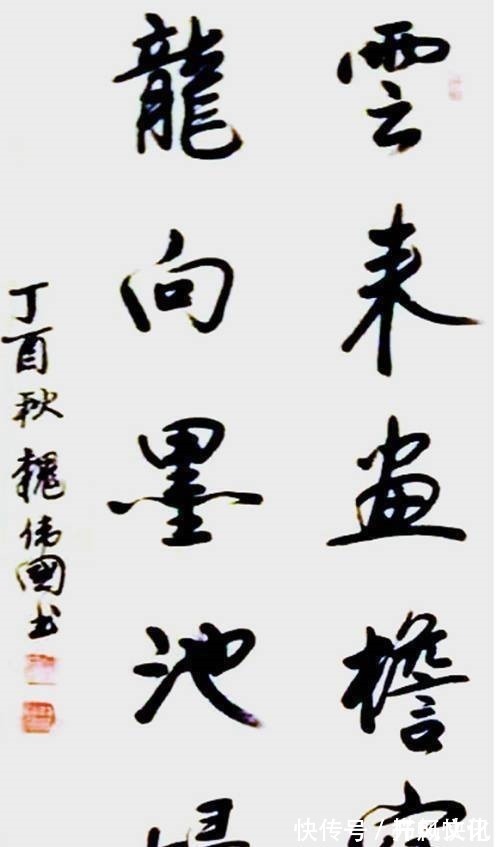 雲来畫檐
龍向墨池
丁酉秋魏伟國书
快传号 /